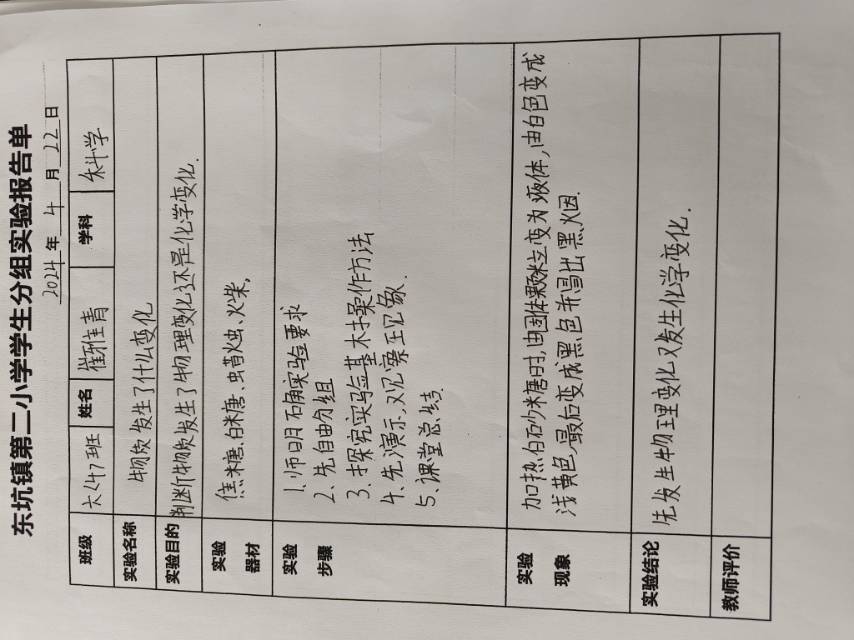 东坑镇第二小学学生分组实验报告单
2024年4月22日
班级 六(4)班 姓名 崔雅青 学科 科学
实验名称 物质发生了什么变化
实验目的 判断物质发生了物理变化还是化学变化.
实验器材 焦糖.白糖.蜡烛.火柴,
实验步骤 1.师明确实验要求
2、先自由分组
3.探究实验基本操作方法
4、先演示,观察现象.
5、课堂总结.
实验现象 加热白砂糖时,由固体颗粒变为液体,由白色变成
浅黄色,最后变成黑色并冒出黑烟.
实验结论 先发生物理变化又发生化学变化.
教师评价